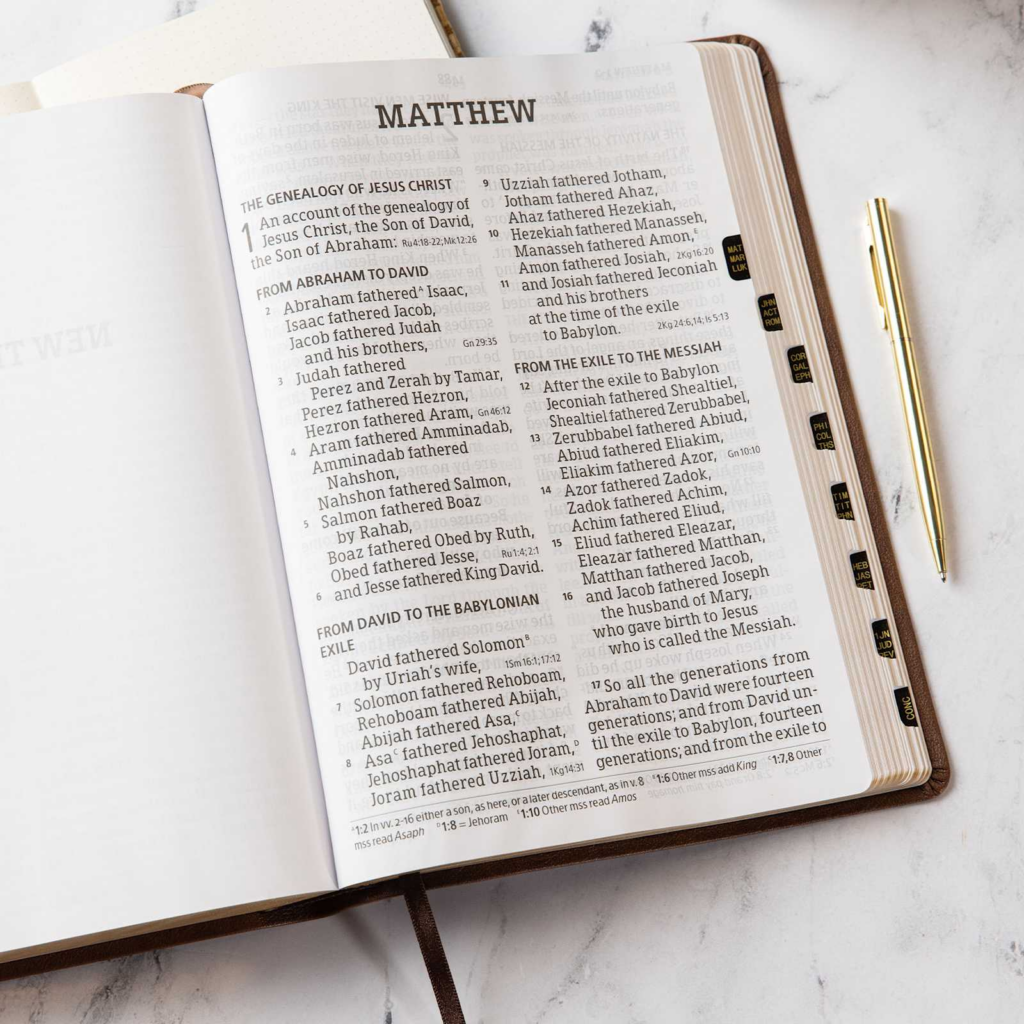 MATTHEW
THE GENEALOGY OF JESUS CHRIST
1 An account of the genealogy of
Jesus Christ, the Son of David,
the Son of Abraham: Ru 4:18-22; Mk 12:26
FROM ABRAHAM TO DAVID
2 Abraham fathered^A Isaac,
Isaac fathered Jacob,
Jacob fathered Judah
and his brothers, Gn 29:35
3 Judah fathered
Perez and Zerah by Tamar,
Perez fathered Hezron,
Hezron fathered Aram, Gn 46:12
4 Aram fathered Amminadab,
Amminadab fathered
Nahshon,
Nahshon fathered Salmon,
5 Salmon fathered Boaz
by Rahab,
Boaz fathered Obed by Ruth,
Obed fathered Jesse, Ru 1:4; 2:1
6 and Jesse fathered King David.
FROM DAVID TO THE BABYLONIAN
EXILE
David fathered Solomon^B
by Uriah's wife, 1Sm 16:1; 17:12
7 Solomon fathered Rehoboam,
Rehoboam fathered Abijah,
Abijah fathered Asa,^C
8 Asa^C fathered Jehoshaphat,
Jehoshaphat fathered Joram,^D
Joram fathered Uzziah, 1Kg 14:31
9 Uzziah fathered Jotham,
Jotham fathered Ahaz,
Ahaz fathered Hezekiah,
10 Hezekiah fathered Manasseh,
Manasseh fathered Amon,^E
Amon fathered Josiah, 2Kg 16:20
11 and Josiah fathered Jeconiah
and his brothers
at the time of the exile
to Babylon. 2Kg 24:6,14; Is 5:13
FROM THE EXILE TO THE MESSIAH
12 After the exile to Babylon
Jeconiah fathered Shealtiel,
Shealtiel fathered Zerubbabel,
13 Zerubbabel fathered Abiud,
Abiud fathered Eliakim,
Eliakim fathered Azor, Gn 10:10
14 Azor fathered Zadok,
Zadok fathered Achim,
Achim fathered Eliud,
15 Eliud fathered Eleazar,
Eleazar fathered Matthan,
Matthan fathered Jacob,
16 and Jacob fathered Joseph
the husband of Mary,
who gave birth to Jesus
who is called the Messiah.
17 So all the generations from
Abraham to David were fourteen
generations; and from David un-
til the exile to Babylon, fourteen
generations; and from the exile to
^A 1:2 In vv. 2-16 either a son, as here, or a later descendant, as in v. 8 ^B 1:6 Other mss add King ^C 1:7,8 Other
mss read Asaph ^D 1:8 = Jehoram ^E 1:10 Other mss read Amos
MAT
MAR
LUK
JHN
ACT
ROM
COR
GAL
EPH
PHI
COL
THS
TIM
TIT
PHN
HEB
JAS
PET
1JN
JUD
REV
CONC